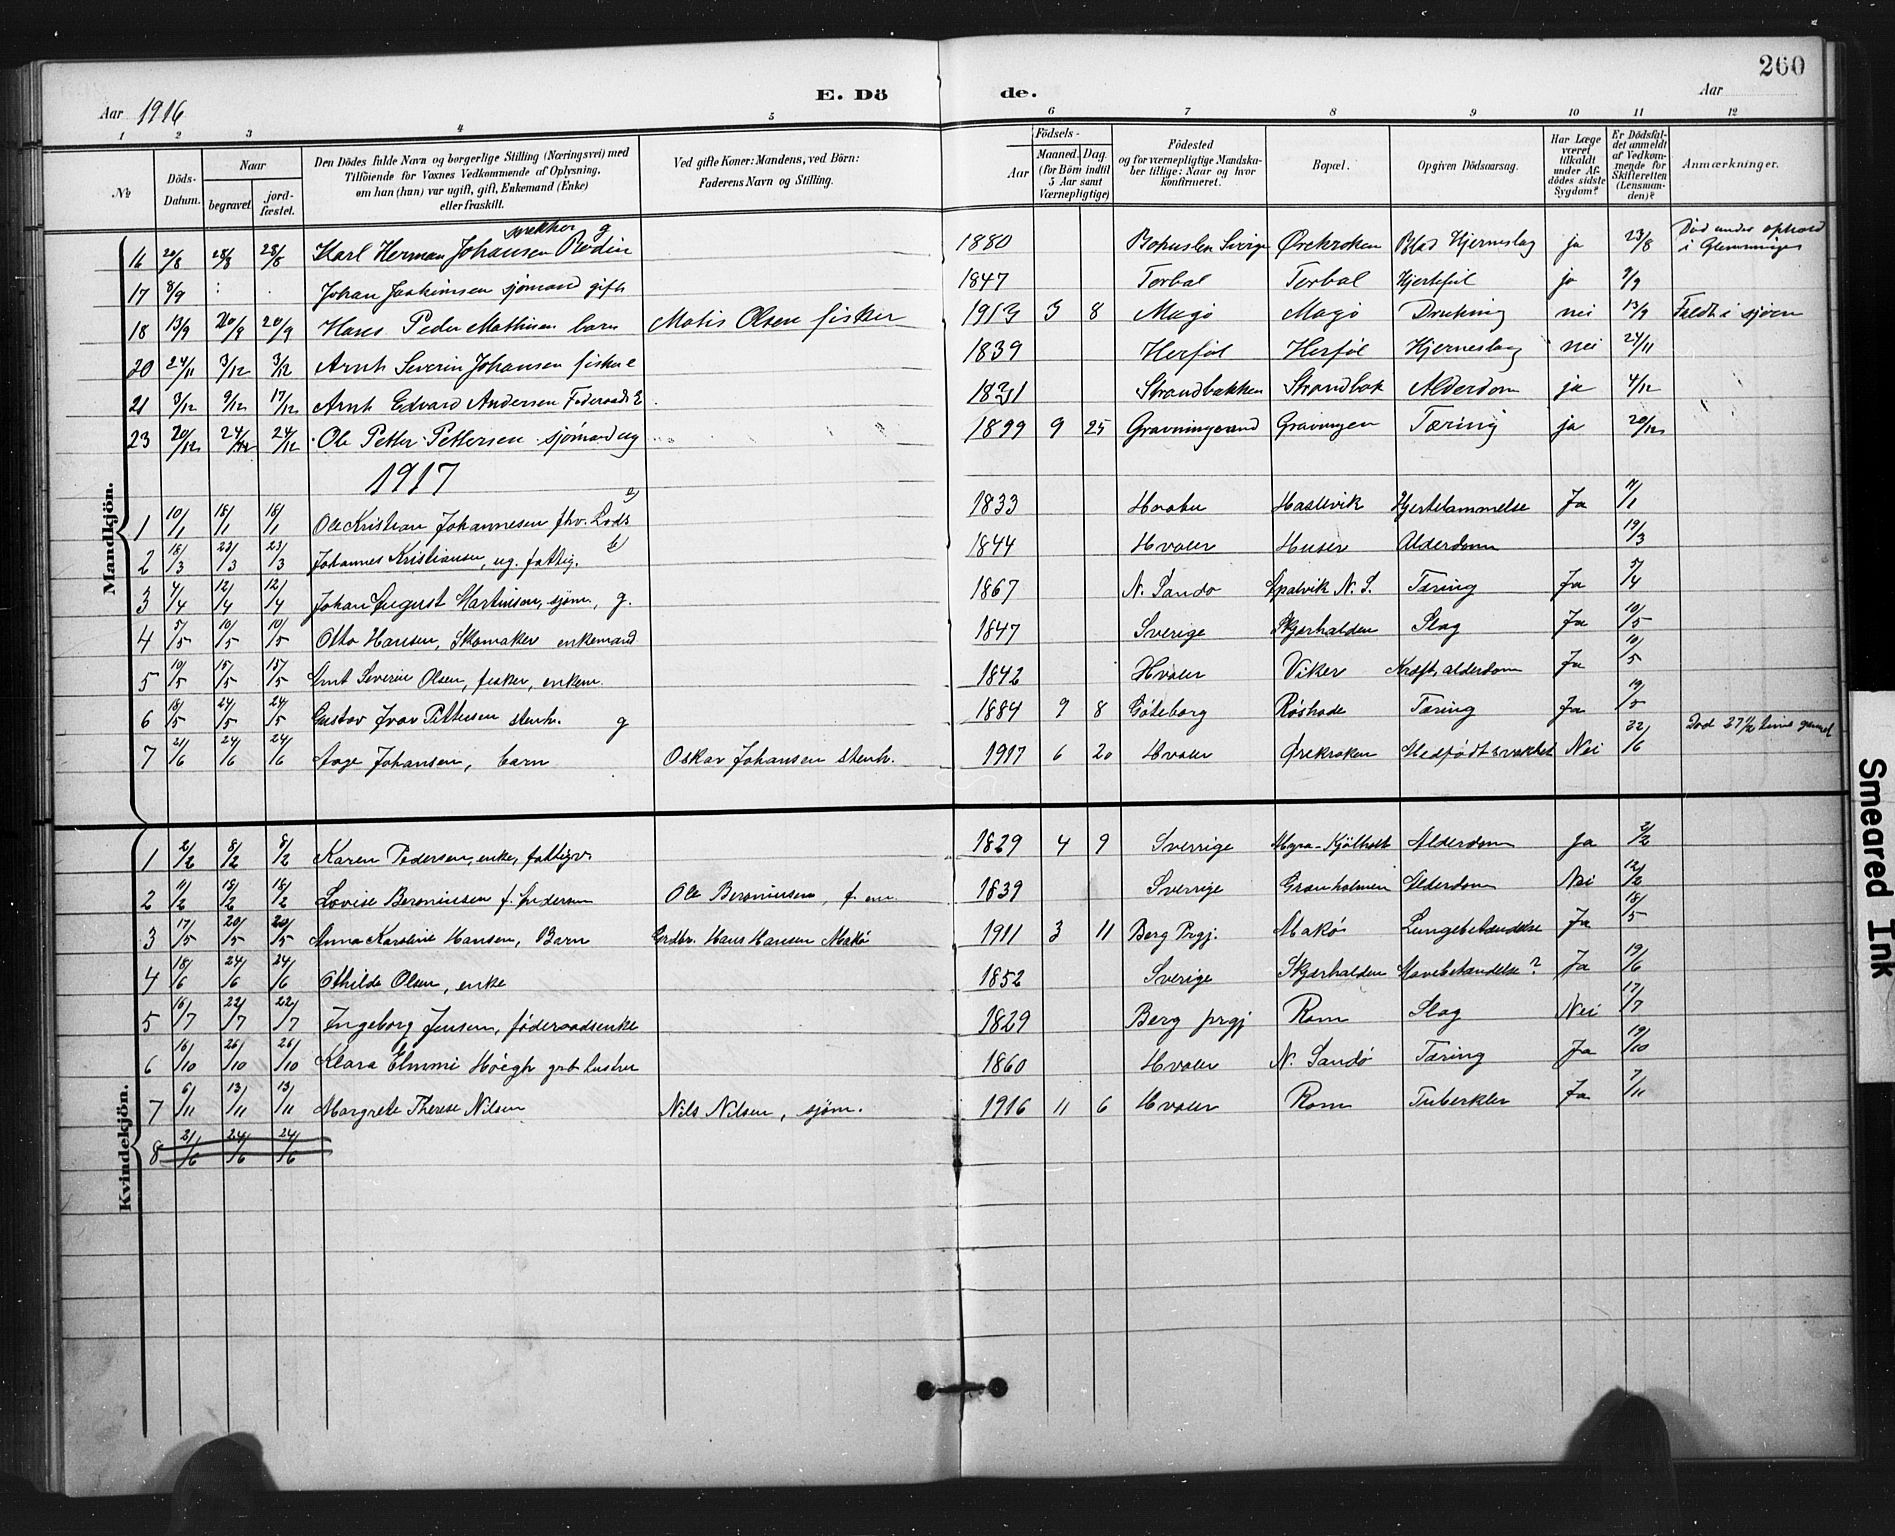 260
Aar 1916
E. Dö de.
Aar
1 2 3 4 5 6 7 8 9 10 11 12
№
Döds-Datum.
Naar
begravet
jordfæstet.
Den Dödes fulde Navn og borgerlige Stilling (Næringsvei) med Tilföiende for Voxnes Vedkommende af Oplysning, om han (hun) var ugift, gift, Enkemand (Enke) eller fraskilt.
Ved gifte Koner: Mandens, ved Börn: Faderens Navn og Stilling.
Födsels-
Aar
Maaned. Dag.
(for Börn indtil 5 Aar samt Værnepligtige)
Födested og for værnepligtige Mandskaber tillige: Naar og hvor konfirmeret.
Bopæl.
Opgiven Dödsaarsag.
Har Læge været tilkaldt under Afdödes sidste Sygdom?
Er Dödsfaldet anmeldt af Vedkommende for Skifteretten (Lensmanden)?
Anmærkninger.
Mandkjön.
16 20/8 28/8 28/8 Karl Herman Johansen Bodin g 1880 Bohuslen Sverige Ørekroken Hjerneslag ja 23/8 Død under ophold i Glemminge
17 8/9 Johan Joakimsen sjömand gift 1847 Torbal Torbal Hjertefeil ja 9/9
18 13/9 20/9 20/9 Hans Peder Mathisen barn Matis Olsen fisker 1913 3 8 Magö Magö Drukning nei 13/9 Faldt i sjöen
20 24/11 3/12 3/12 Arnt Severin Johansen fisker e 1839 Herföl Herföl Hjerneslag nei 27/11
21 3/12 9/12 17/12 Arnt Edvard Andersen Föderaads E 1831 Strandbakken Strandbak Alderdom ja 4/12
23 20/12 24/12 24/12 Ole Petter Pettersen sjömand ug 1899 9 25 Gravningsund Gravningen Tæring ja 20/12
1917
1 10/1 16/1 16/1 Ole Kristian Johannesen fhv. Lods 1833 Hvaler Haslevik Hjertelammelse Ja 11/1
2 18/3 23/3 23/3 Johannes Kristiansen, ug. fattig. 1844 Hvaler Huser Alderdom 19/3
3 4/4 12/4 12/4 Johan August Martinsen, sjöm., g. 1867 N. Sandö N. S. Tæring Ja 5/4
4 5/5 10/5 10/5 Otto Hansen, Skomaker enkemand 1847 Sverige Skjærhalden Slag Ja 10/5
5 10/5 15/5 15/5 Arnt Severin Olsen, fisker, enkem. 1842 Hvaler Viker Kræft, alderdom Ja 10/5
6 18/5 24/5 24/5 Gustav Ivar Pettersen stenh. g 1884 9 8 Göteborg Tæring Ja 19/5
7 21/6 24/6 24/6 Aage Johansen, barn Oskar Johansen stenh. 1917 6 20 Hvaler Ørekroken Medfödt svakhet Nei 22/6 Död 27½ time gammel
Kvindekjön.
1 2/2 8/2 8/2 Karen Pedersen, enke, fattigv. 1829 4 9 Sverrige Myra-Kjölholt Alderdom ja 2/2
2 11/2 18/2 18/2 Lovise Berniusen f. Andersen Ole Berniusen, f. em. 1839 Sverrige Grønholmen Alderdom Nei 12/2
3 17/5 20/5 20/5 Anna Karoline Hansen, Barn Grdbr. Hans Hansen Makö 1911 3 11 Berg Prgj. Makö Lungebetændelse Ja 18/5
4 18/6 24/6 24/6 Othilde Olsen, enke 1852 Sverige Skjærhalden Mavebetændelse? Ja 19/6
5 16/7 22/7 22/7 Ingeborg Jensen, föderaadsenke 1829 Berg prgj Rom Slag Nei 17/7
6 16/10 26/10 26/10 Klara Elmine Höegh grb hustru 1860 Hvaler N. Sandö Tæring Ja 19/10
7 6/11 13/11 13/11 Margrete Therese Nilsen Nils Nilsen, sjöm. 1916 11 6 Hvaler Rom Tuberkler Ja 7/11
8 21/6 24/6 24/6
Smeared Ink